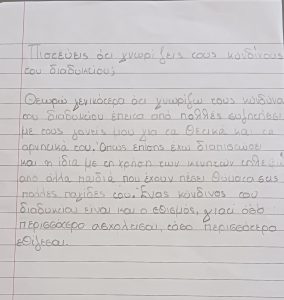 Πιστεύεις ότι γνωρίζεις τους κινδύνους
του διαδυκτίου;
Θεωρώ γενικότερα ότι γνωρίζω τους κινδύνο
του διαδυκτίου έπειτα από πολλές συζητήσεις
με τους γονείς μου για τα θετικά και τα
αρνητικά του. Όπως επίσης έχω διαπιστώσει
και η ίδια με τη χρήση των κινητών
από άλλα παιδιά που έχουν πέσει θύματα στις
πολλές παγίδες του. Ένας κίνδυνος του
διαδυκτίου είναι και ο εθισμός, γιατί όσο
περισσότερο ασχολείσαι, τόσο περισσότερο
εθίζεσαι.